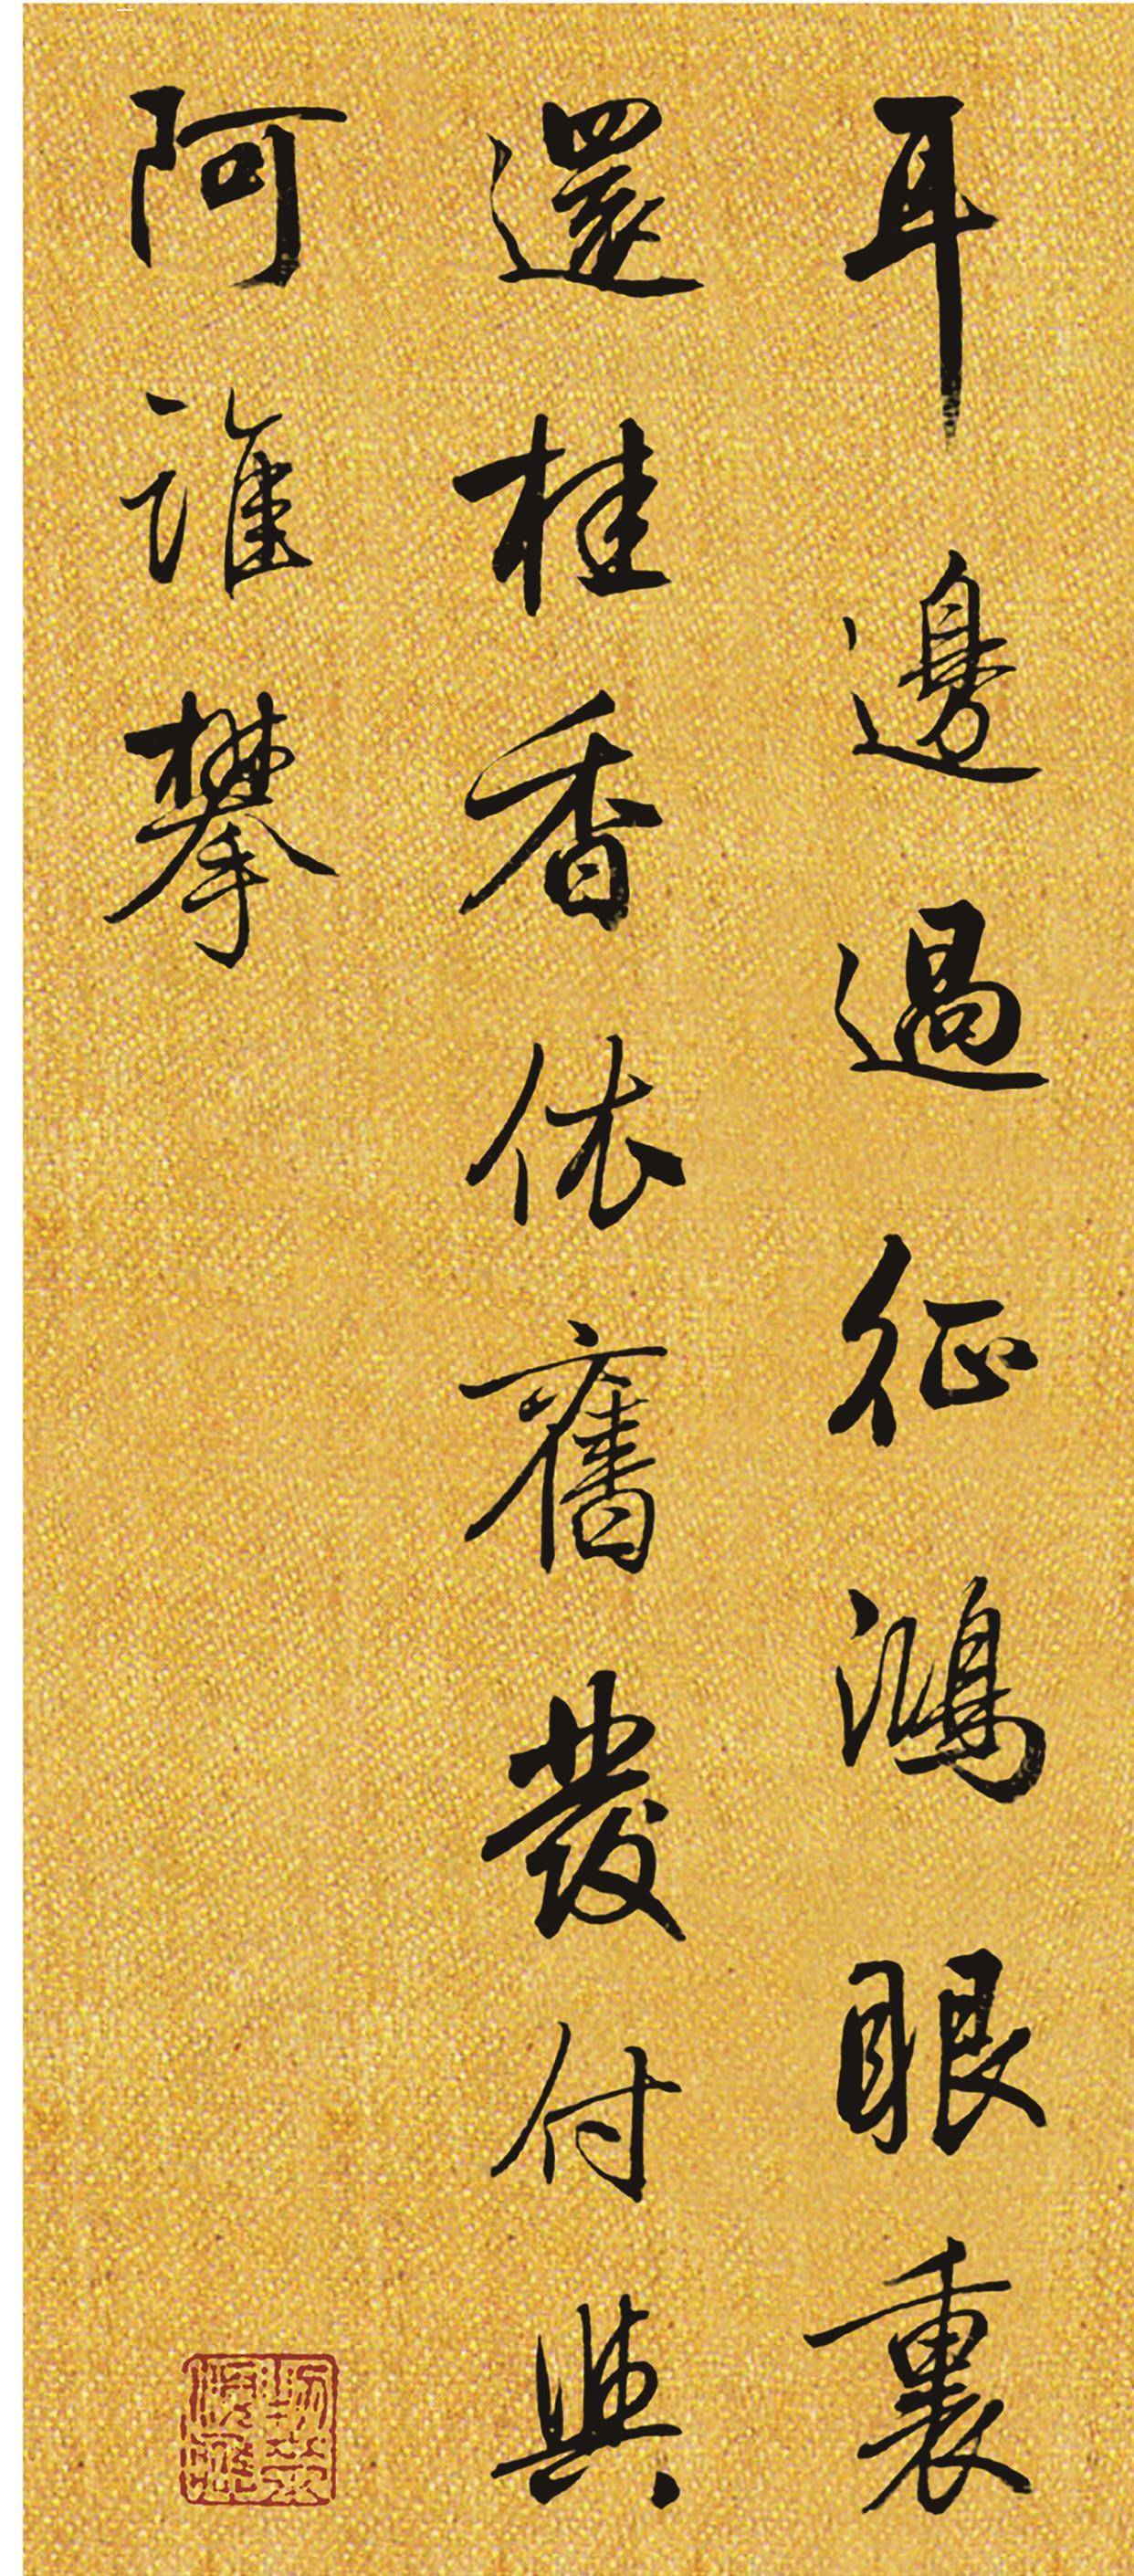 耳邊過征鴻眼裏
還桂香依舊發付與
阿誰攀